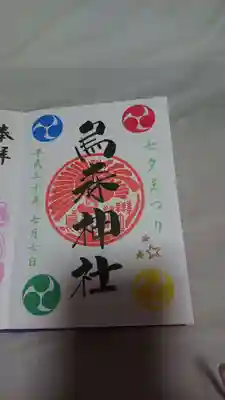 七夕まつり
烏森神社
平成三十年七月七日
奉拝